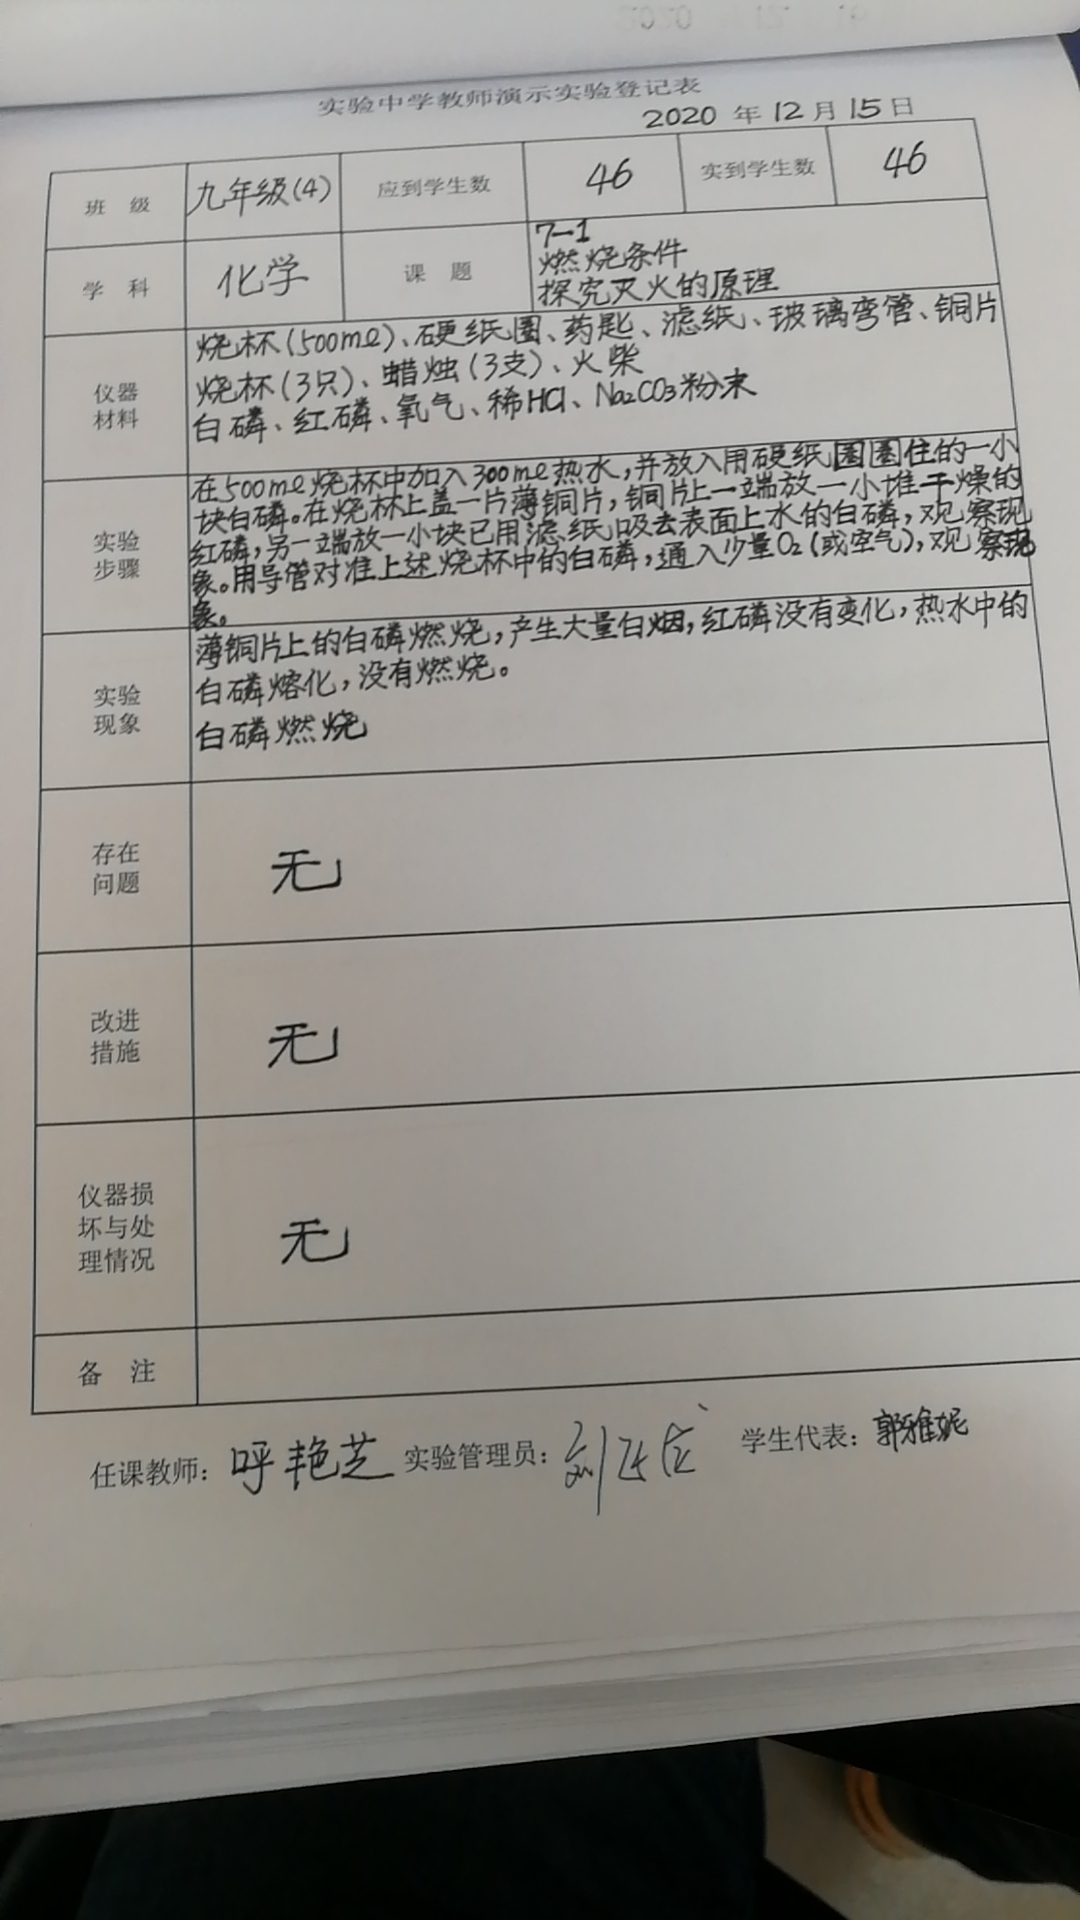 实验中学教师演示实验登记表
2020 年 12 月 15 日
班 级 九年级(4) 应到学生数 46 实到学生数 46
学 科 化学 课 题 7-1
燃烧条件
探究灭火的原理
仪器
材料
烧杯(500ml)、硬纸圈、药匙、滤纸、玻璃弯管、铜片
烧杯(3只)、蜡烛(3支)、火柴
白磷、红磷、氧气、稀HCl、Na2CO3粉末
实验
步骤
在500ml烧杯中加入300ml热水,并放入用硬纸圈圈住的一小
块白磷。在烧杯上盖一片薄铜片,铜片上一端放一小堆干燥的
红磷,另一端放一小块已用滤纸吸去表面上水的白磷,观察现
象。用导管对准上述烧杯中的白磷,通入少量O2(或空气),观察现
象。
实验
现象
薄铜片上的白磷燃烧,产生大量白烟,红磷没有变化,热水中的
白磷熔化,没有燃烧。
白磷燃烧
存在
问题
无
改进
措施
无
仪器损
坏与处
理情况
无
备 注
任课教师: 呼艳芝 实验管理员: 刘 学生代表: 郭雅妮